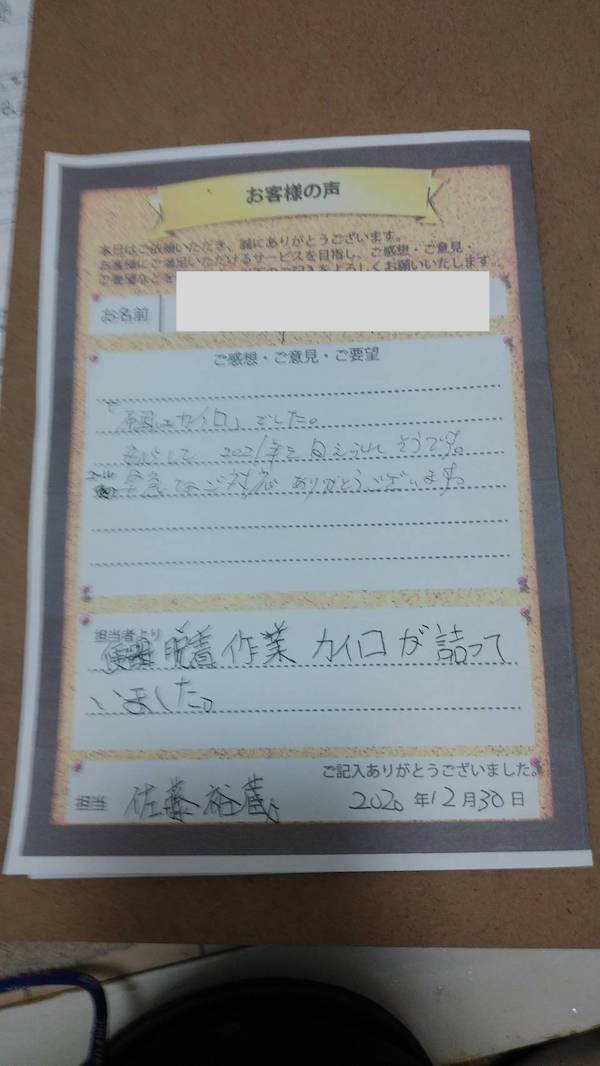 お客様の声
本日はご依頼いただき、誠にありがとうございます。
お客様にご満足いただけるサービスを目指し、ご感想・ご意見・
ご要望などを のご記入をよろしくお願いいたします。
お名前
ご感想・ご意見・ご要望
原因はカイロ」でした。
安心して 2021年を迎えられそうです。
早急なご対応ありがとうございます。
担当者より
脱着作業 カイロが詰って
いました。
ご記入ありがとうございました。
担当 佐藤 裕蔵
2020年12月30日